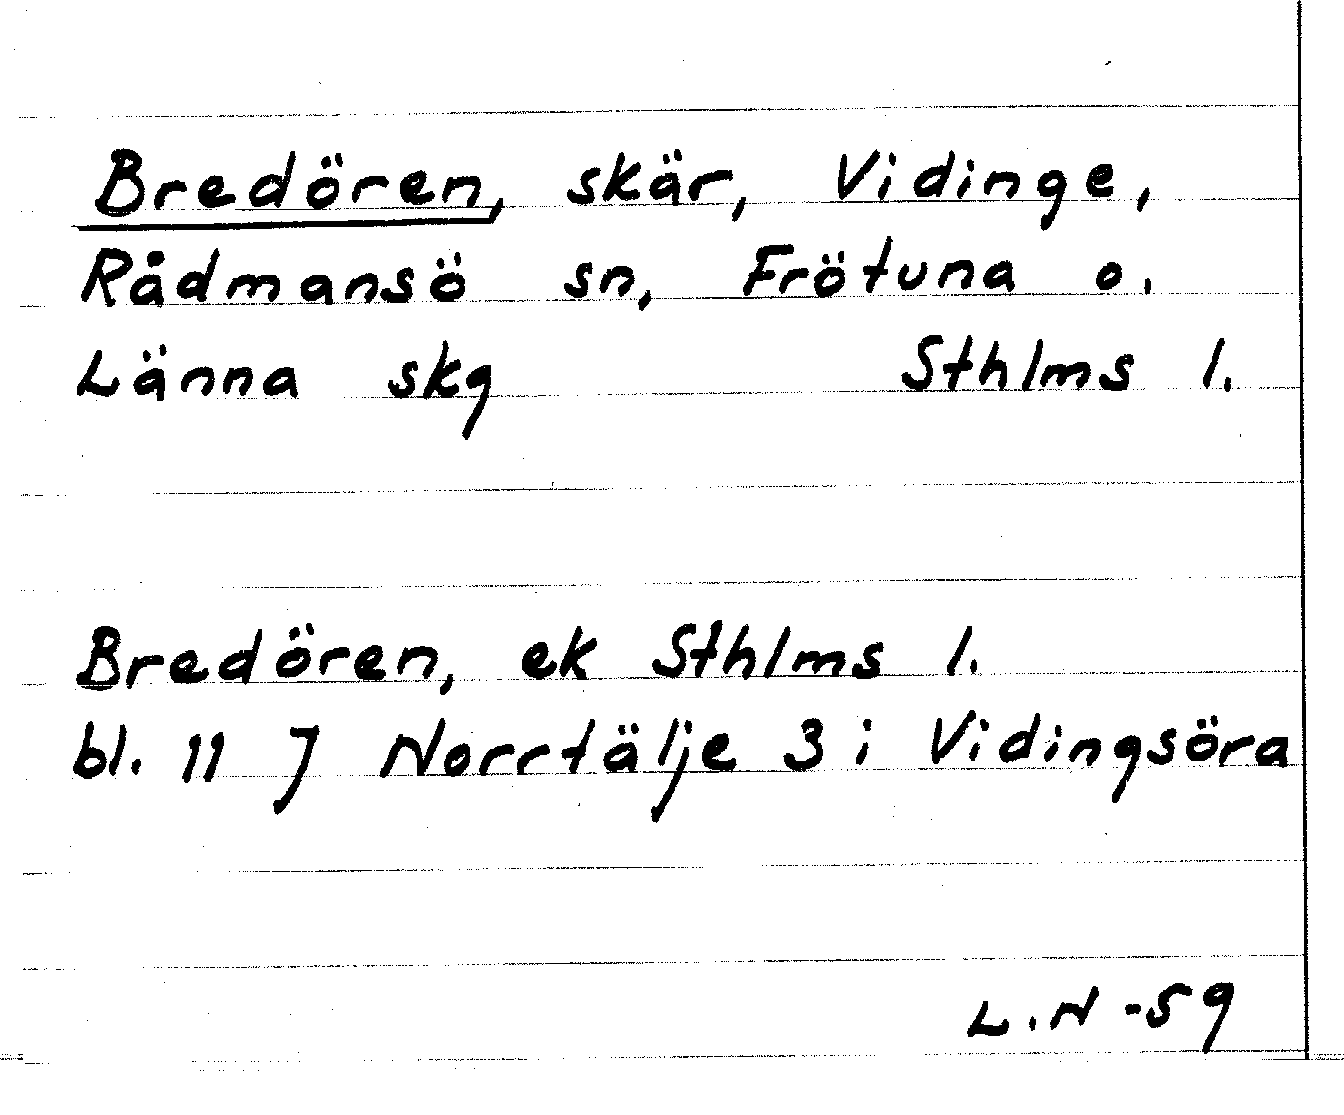 Bredören, skär, Vidinge,
Rådmansö sn, Frötuna o.
Länna skg Sthlms l.
Bredören, ek Sthlms l.
bl. 11 J Norrtälje 3 i Vidingsöra
L.N -59